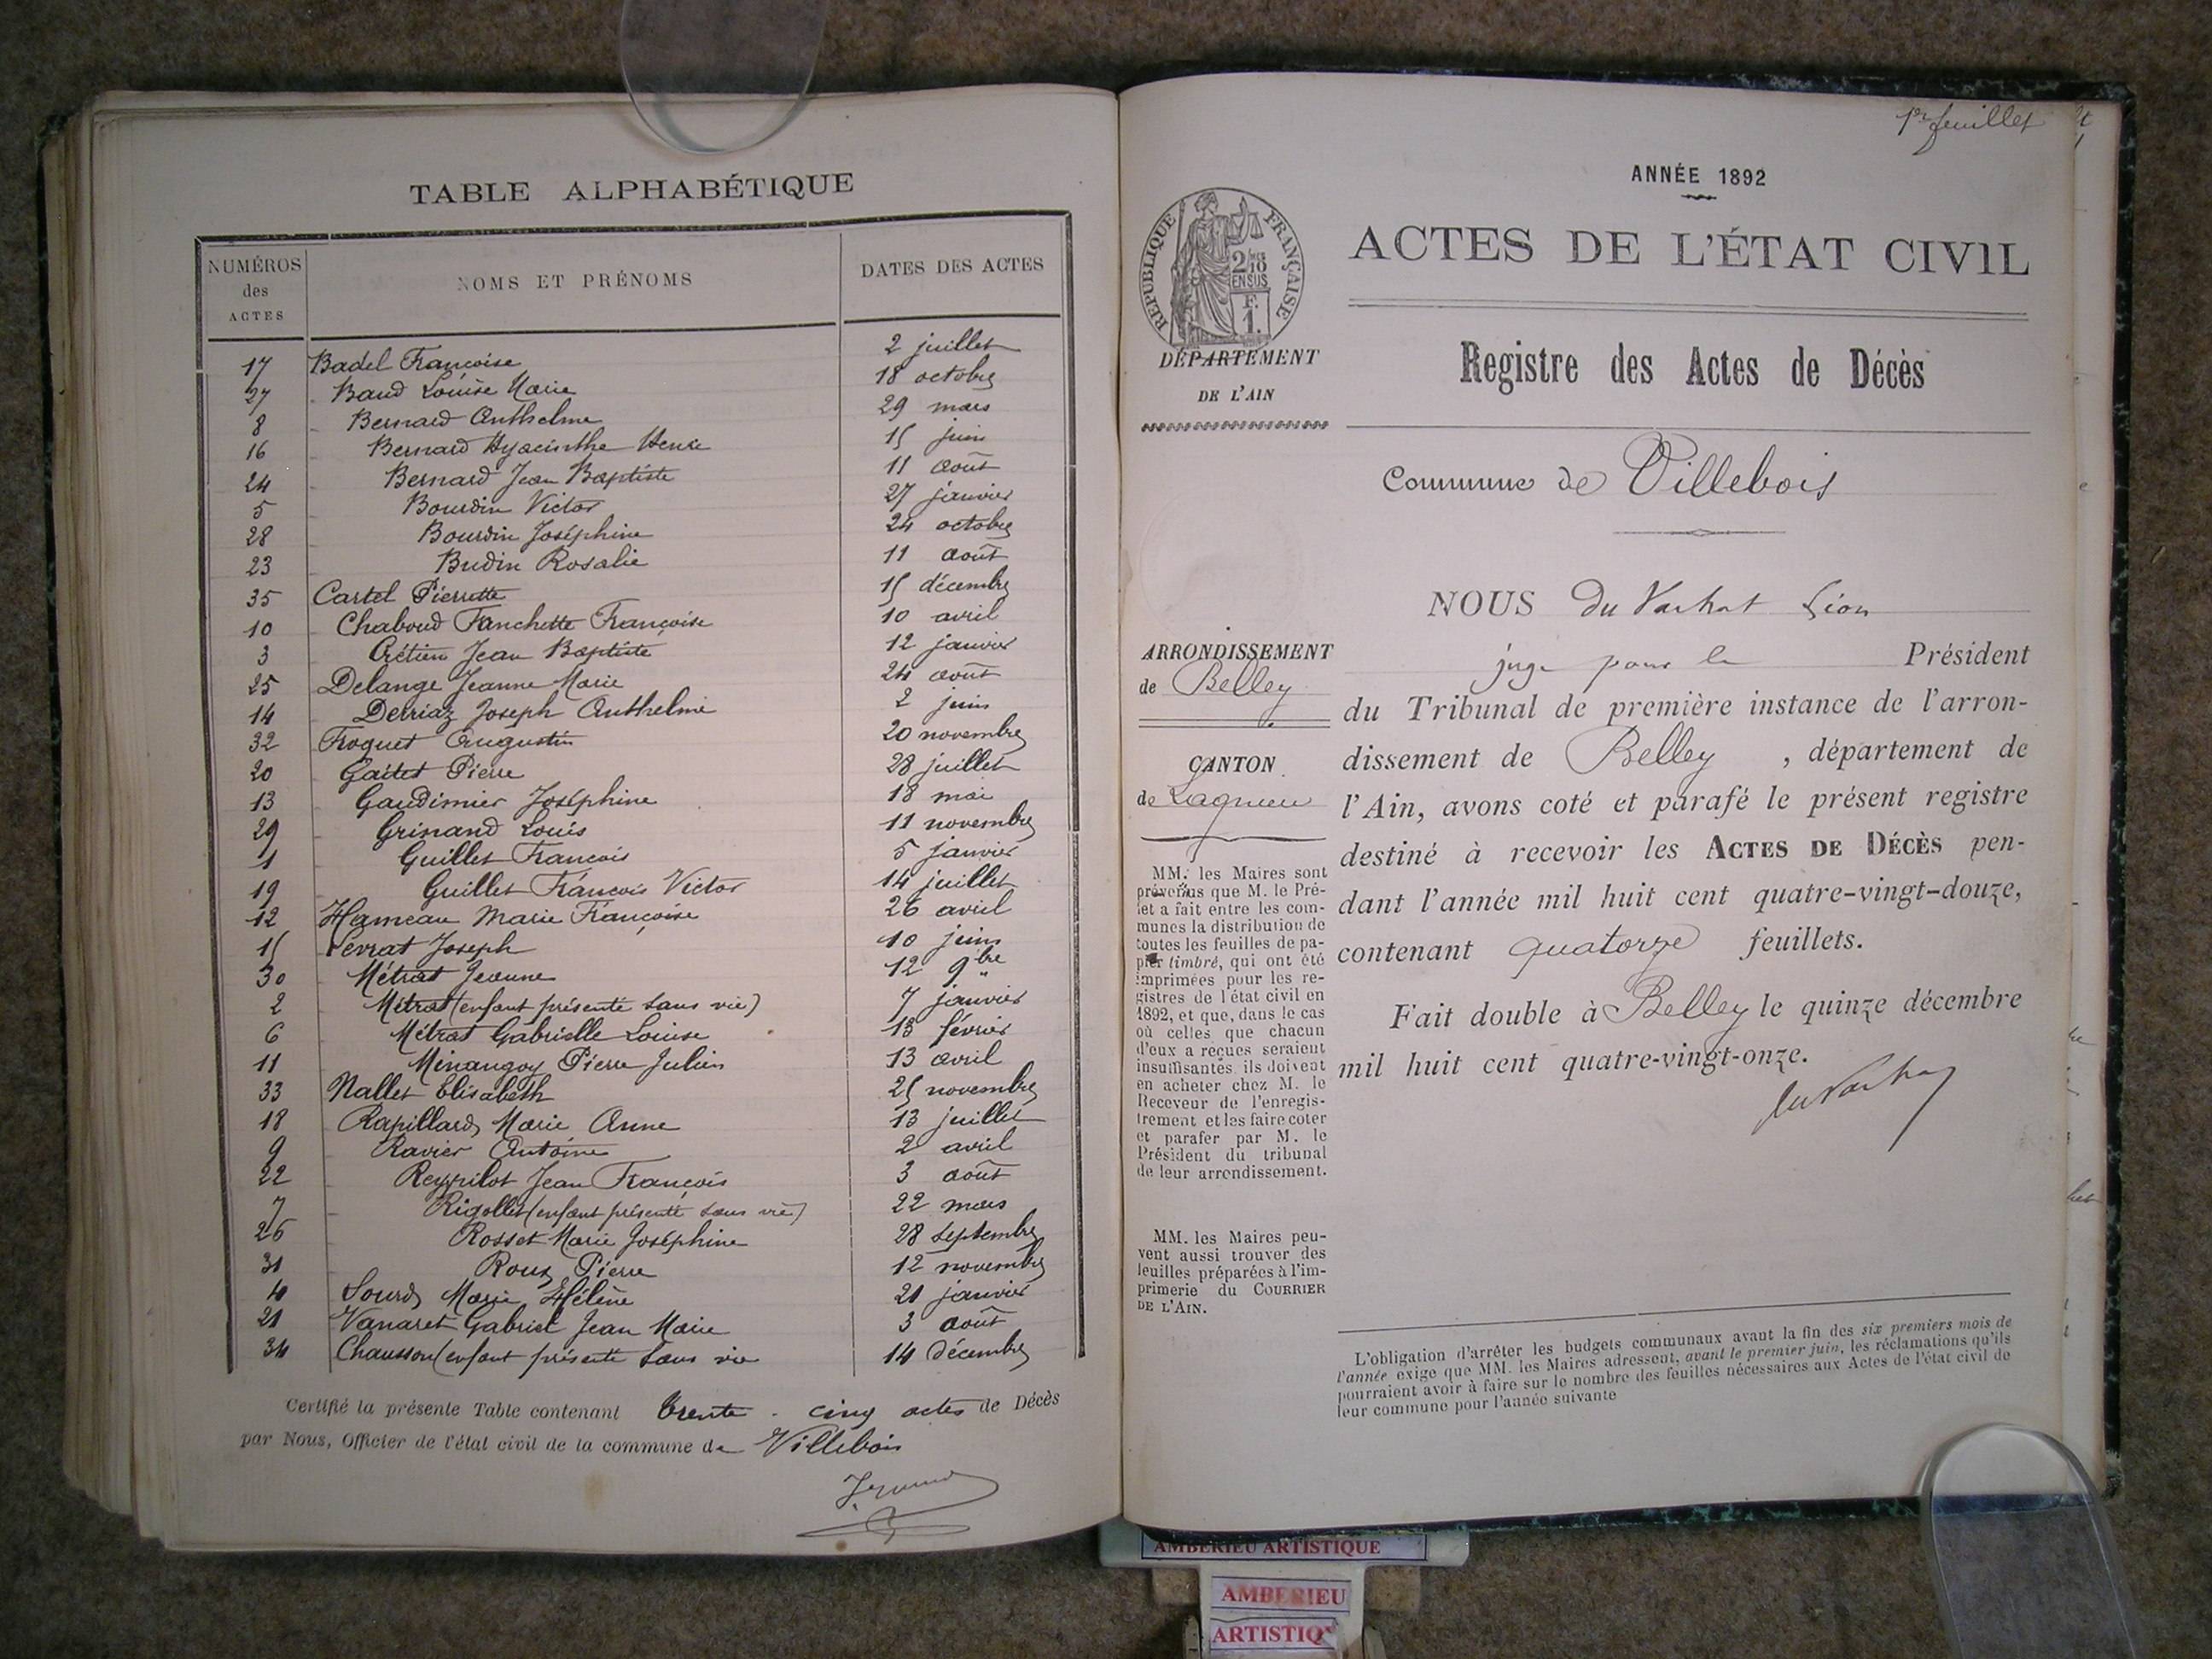 TABLE ALPHABÉTIQUE
NUMÉROS des ACTES NOMS ET PRÉNOMS DATES DES ACTES
17 Badel Françoise 2 juillet
27 Baud Louise Marie 18 octobre
8 Bernard Anthelme 29 mars
16 Bernard Hyacinthe Henri 15 juin
24 Bernard Jean Baptiste 11 août
5 Bourdin Victor 27 janvier
28 Bourdin Joséphine 24 octobre
23 Budin Rosalie 11 août
35 Cartel Pierrette 15 décembre
10 Chaboud Fanchette Françoise 10 avril
3 Crétien Jean Baptiste 12 janvier
25 Delange Jeanne Marie 24 août
14 Derriaz Joseph Anthelme 2 juin
32 Froquet Augustin 20 novembre
20 Gaitet Pierre 28 juillet
13 Gaudimier Joséphine 18 mai
29 Grinand Louis 11 novembre
1 Guillet François 5 janvier
19 Guillet François Victor 14 juillet
12 Hameau Marie Françoise 26 avril
15 Levrat Joseph 10 juin
30 Métrat Jeanne 12 9bre
2 Métrat (enfant présenté sans vie) 7 janvier
6 Métrat Gabrielle Louise 13 février
11 Minangoy Pierre Julien 13 avril
33 Nallet Elisabeth 25 novembre
18 Rapillard Marie Anne 13 juillet
9 Ravier Antoine 2 avril
22 Reyrilot Jean François 3 août
7 Rigollet (enfant présenté sans vie) 22 mars
26 Rosset Marie Joséphine 28 septembre
31 Roux Pierre 12 novembre
4 Sourd Marie Hélène 21 janvier
21 Vanaret Gabriel Jean Marie 3 août
34 Chausson (enfant présenté sans vie 14 décembre
Certifié la présente Table contenant trente-cinq actes de Décès
par Nous, Officier de l'état civil de la commune de Villebois
1er feuillet
ANNÉE 1892
RÉPUBLIQUE FRANÇAISE
2/10 EN SUS
F. 1.
ACTES DE L'ÉTAT CIVIL
Registre des Actes de Décès
DÉPARTEMENT
DE L'AIN
Commune de Villebois
ARRONDISSEMENT
de Belley
CANTON
de Lagnieu
MM. les Maires sont
prévenus que M. le Pré-
fet a fait entre les com-
munes la distribution de
toutes les feuilles de pa-
pier timbré, qui ont été
imprimées pour les re-
gistres de l'état civil en
1892, et que, dans le cas
où celles que chacun
d'eux a reçues seraient
insuffisantes, ils doivent
en acheter chez M. le
Receveur de l'enregis-
trement et les faire coter
et parafer par M. le
Président du tribunal
de leur arrondissement.
MM. les Maires peu-
vent aussi trouver des
feuilles préparées à l'im-
primerie du COURRIER
DE L'AIN.
NOUS Du Vachat Léon
juge pour le Président
du Tribunal de première instance de l'arron-
dissement de Belley, département de
l'Ain, avons coté et parafé le présent registre
destiné à recevoir les ACTES DE DÉCÈS pen-
dant l'année mil huit cent quatre-vingt-douze,
contenant quatorze feuillets.
Fait double à Belley le quinze décembre
mil huit cent quatre-vingt-onze.
du Vachat
L'obligation d'arrêter les budgets communaux avant la fin des six premiers mois de
l'année exige que MM. les Maires adressent, avant le premier juin, les réclamations qu'ils
pourraient avoir à faire sur le nombre des feuilles nécessaires aux Actes de l'état civil de
leur commune pour l'année suivante
AMBERIEU ARTISTIQUE
AMBERIEU
ARTISTIQ